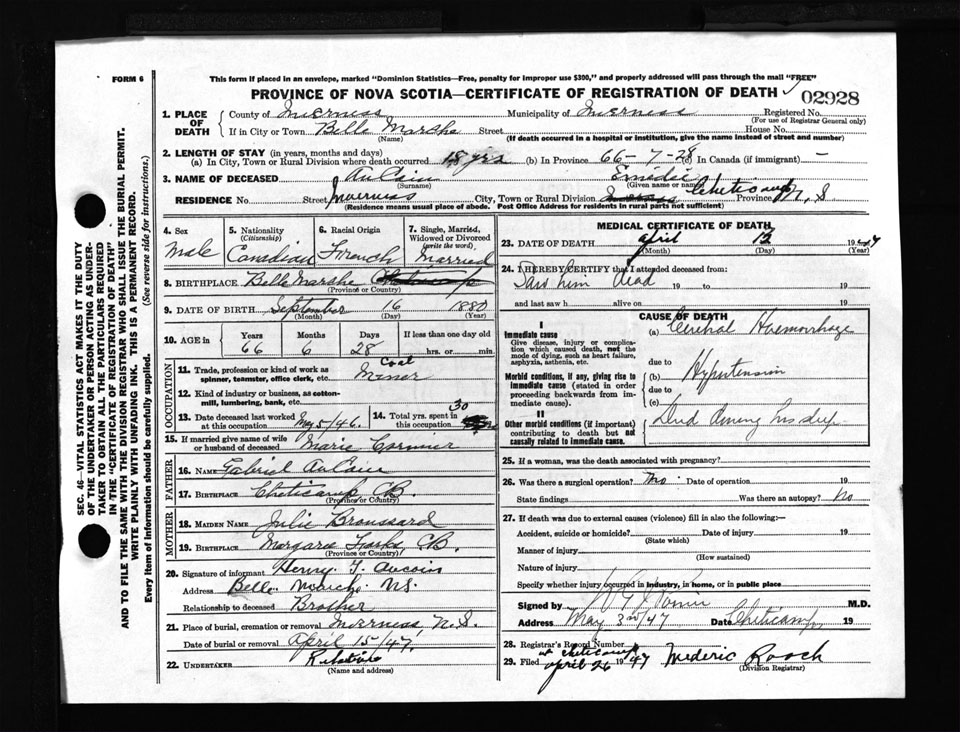 FORM 6
This form if placed in an envelope, marked "Dominion Statistics—Free, penalty for improper use $300," and properly addressed will pass through the mail "FREE"
PROVINCE OF NOVA SCOTIA—CERTIFICATE OF REGISTRATION OF DEATH
02928
1. PLACE OF DEATH
County of Inverness Municipality of Inverness Registered No.
(For use of Registrar General only)
If in City or Town Belle Marshe Street House No.
(Name) (If death occurred in a hospital or institution, give the name instead of street and number)
2. LENGTH OF STAY (in years, months and days)
(a) In City, Town or Rural Division where death occurred 18 yrs (b) In Province 66-7-28 (c) In Canada (if immigrant) —
3. NAME OF DECEASED AuCoin
(Surname) (Given name or names)
RESIDENCE No. Street Inverness City, Town or Rural Division Cheticamp Province N. S
(Residence means usual place of abode. Post Office Address for residents in rural parts not sufficient)
4. Sex
Male
5. Nationality
(Citizenship)
Canadian
6. Racial Origin
French
7. Single, Married, Widowed or Divorced
(write the word)
Married
8. BIRTHPLACE Belle Marshe
(Province or Country)
9. DATE OF BIRTH September 16 1880
(Month) (Day) (Year)
10. AGE in Years Months Days If less than one day old
66 6 28 hrs. or min.
OCCUPATION
11. Trade, profession or kind of work as spinner, teamster, office clerk, etc. Coal Miner
12. Kind of industry or business, as cotton-mill, lumbering, bank, etc.
13. Date deceased last worked at this occupation May 5/46.
14. Total yrs. spent in this occupation 30
15. If married give name of wife or husband of deceased Marie Cormier
FATHER
16. NAME Gabriel AuCoin
17. BIRTHPLACE Cheticamp CB.
(Province or Country)
MOTHER
18. MAIDEN NAME Julie Broussard
19. BIRTHPLACE Margaree Forks, CB.
(Province or Country)
20. Signature of informant Henry J. Aucoin
Address Belle Marche NS.
Relationship to deceased Brother
21. Place of burial, cremation or removal Inverness, N.S.
Date of burial or removal April 15/47
22. UNDERTAKER Relatives
(Name and address)
MEDICAL CERTIFICATE OF DEATH
23. DATE OF DEATH April 13 1947
(Month) (Day) (Year)
24. I HEREBY CERTIFY that I attended deceased from:
Saw him dead 19 to 19
and last saw h alive on 19
CAUSE OF DEATH
I
Immediate cause
Give disease, injury or complication which caused death, not the mode of dying, such as heart failure, asphyxia, asthenia, etc.
(a) Cerebral Haemorrhage
due to
Morbid conditions, if any, giving rise to immediate cause (stated in order proceeding backwards from immediate cause).
(b) Hypertension
due to
(c)
II
Other morbid conditions (if important) contributing to death but not causally related to immediate cause.
Died during his sleep
25. If a woman, was the death associated with pregnancy?
26. Was there a surgical operation? No. Date of operation 19
State findings Was there an autopsy? No
27. If death was due to external causes (violence) fill in also the following:—
Accident, suicide or homicide? Date of injury 19
(State which)
Manner of injury
(How sustained)
Nature of injury
Specify whether injury occurred in industry, in home, or in public place
Signed by M.D.
Address May 3rd/47 Date Cheticamp 19
28. Registrar's Record Number
29. Filed at Cheticamp April 26 1947 Mederic Roach
(Division Registrar)
SEC. 46—VITAL STATISTICS ACT MAKES IT THE DUTY OF THE UNDERTAKER OR PERSON ACTING AS UNDERTAKER TO OBTAIN ALL THE PARTICULARS REQUIRED IN THE "CERTIFICATE OF REGISTRATION OF DEATH" AND TO FILE THE SAME WITH THE DIVISION REGISTRAR WHO SHALL ISSUE THE BURIAL PERMIT.
WRITE PLAINLY WITH UNFADING INK. THIS IS A PERMANENT RECORD.
Every item of Information should be carefully supplied. (See reverse side for instructions.)